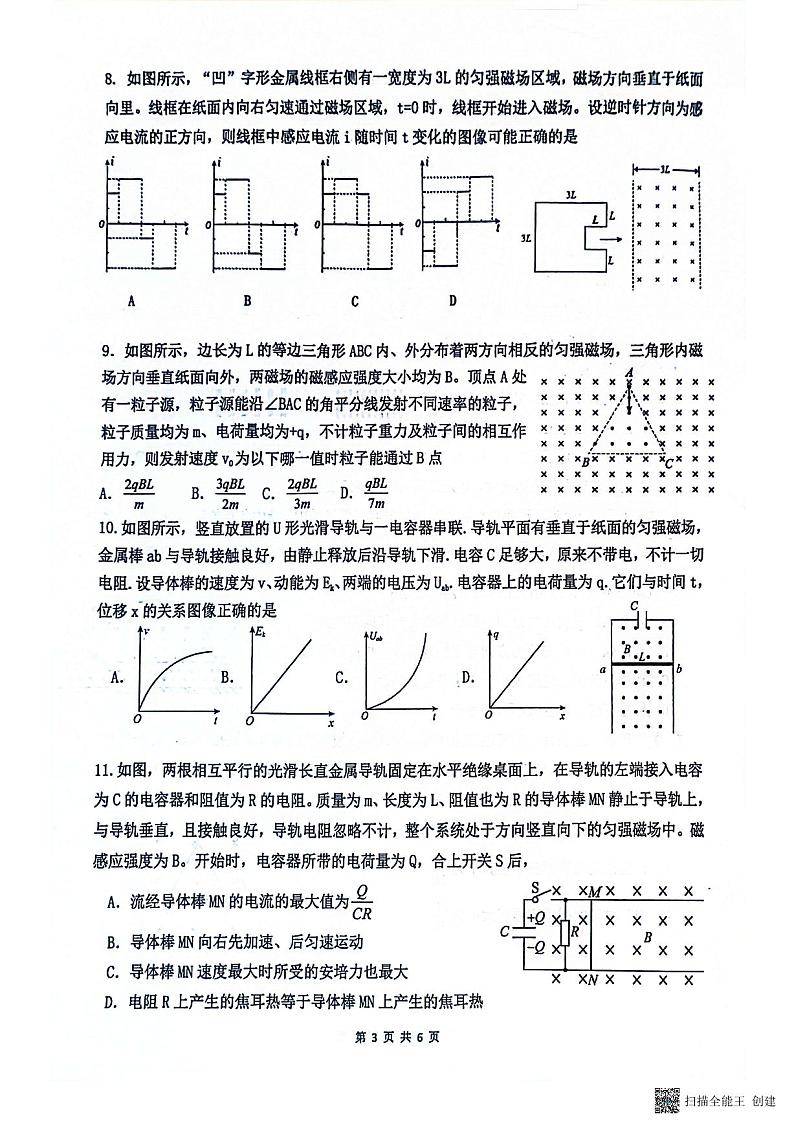 8. 如图所示，“凹”字形金属线框右侧有一宽度为 3L 的匀强磁场区域，磁场方向垂直于纸面
向里。线框在纸面内向右匀速通过磁场区域，t=0 时，线框开始进入磁场。设逆时针方向为感
应电流的正方向，则线框中感应电流 i 随时间 t 变化的图像可能正确的是
i i i i
0 t 0 t 0 t 0 t
3L 3L L L L 3L
A B C D
9. 如图所示，边长为 L 的等边三角形 ABC 内、外分布着两方向相反的匀强磁场，三角形内磁
场方向垂直纸面向外，两磁场的磁感应强度大小均为 B。顶点 A 处
有一粒子源，粒子源能沿∠BAC 的角平分线发射不同速率的粒子，
粒子质量均为 m、电荷量均为+q，不计粒子重力及粒子间的相互作
用力，则发射速度 v₀为以下哪一值时粒子能通过 B 点
A B C
A. 2qBL/m B. 3qBL/2m C. 2qBL/3m D. qBL/7m
10. 如图所示，竖直放置的 U 形光滑导轨与一电容器串联. 导轨平面有垂直于纸面的匀强磁场，
金属棒 ab 与导轨接触良好，由静止释放后沿导轨下滑. 电容 C 足够大，原来不带电，不计一切
电阻. 设导体棒的速度为 v、动能为 Eₖ、两端的电压为 Uab. 电容器上的电荷量为 q. 它们与时间 t，
位移 x 的关系图像正确的是
A. v O t B. Eₖ O x C. Uab O t D. q O x
C B L a b
11. 如图，两根相互平行的光滑长直金属导轨固定在水平绝缘桌面上，在导轨的左端接入电容
为 C 的电容器和阻值为 R 的电阻。质量为 m、长度为 L、阻值也为 R 的导体棒 MN 静止于导轨上，
与导轨垂直，且接触良好，导轨电阻忽略不计，整个系统处于方向竖直向下的匀强磁场中。磁
感应强度为 B。开始时，电容器所带的电荷量为 Q，合上开关 S 后，
A. 流经导体棒 MN 的电流的最大值为Q/CR
B. 导体棒 MN 向右先加速、后匀速运动
C. 导体棒 MN 速度最大时所受的安培力也最大
D. 电阻 R 上产生的焦耳热等于导体棒 MN 上产生的焦耳热
S M +Q C −Q R B N
第 3 页 共 6 页
扫描全能王 创建